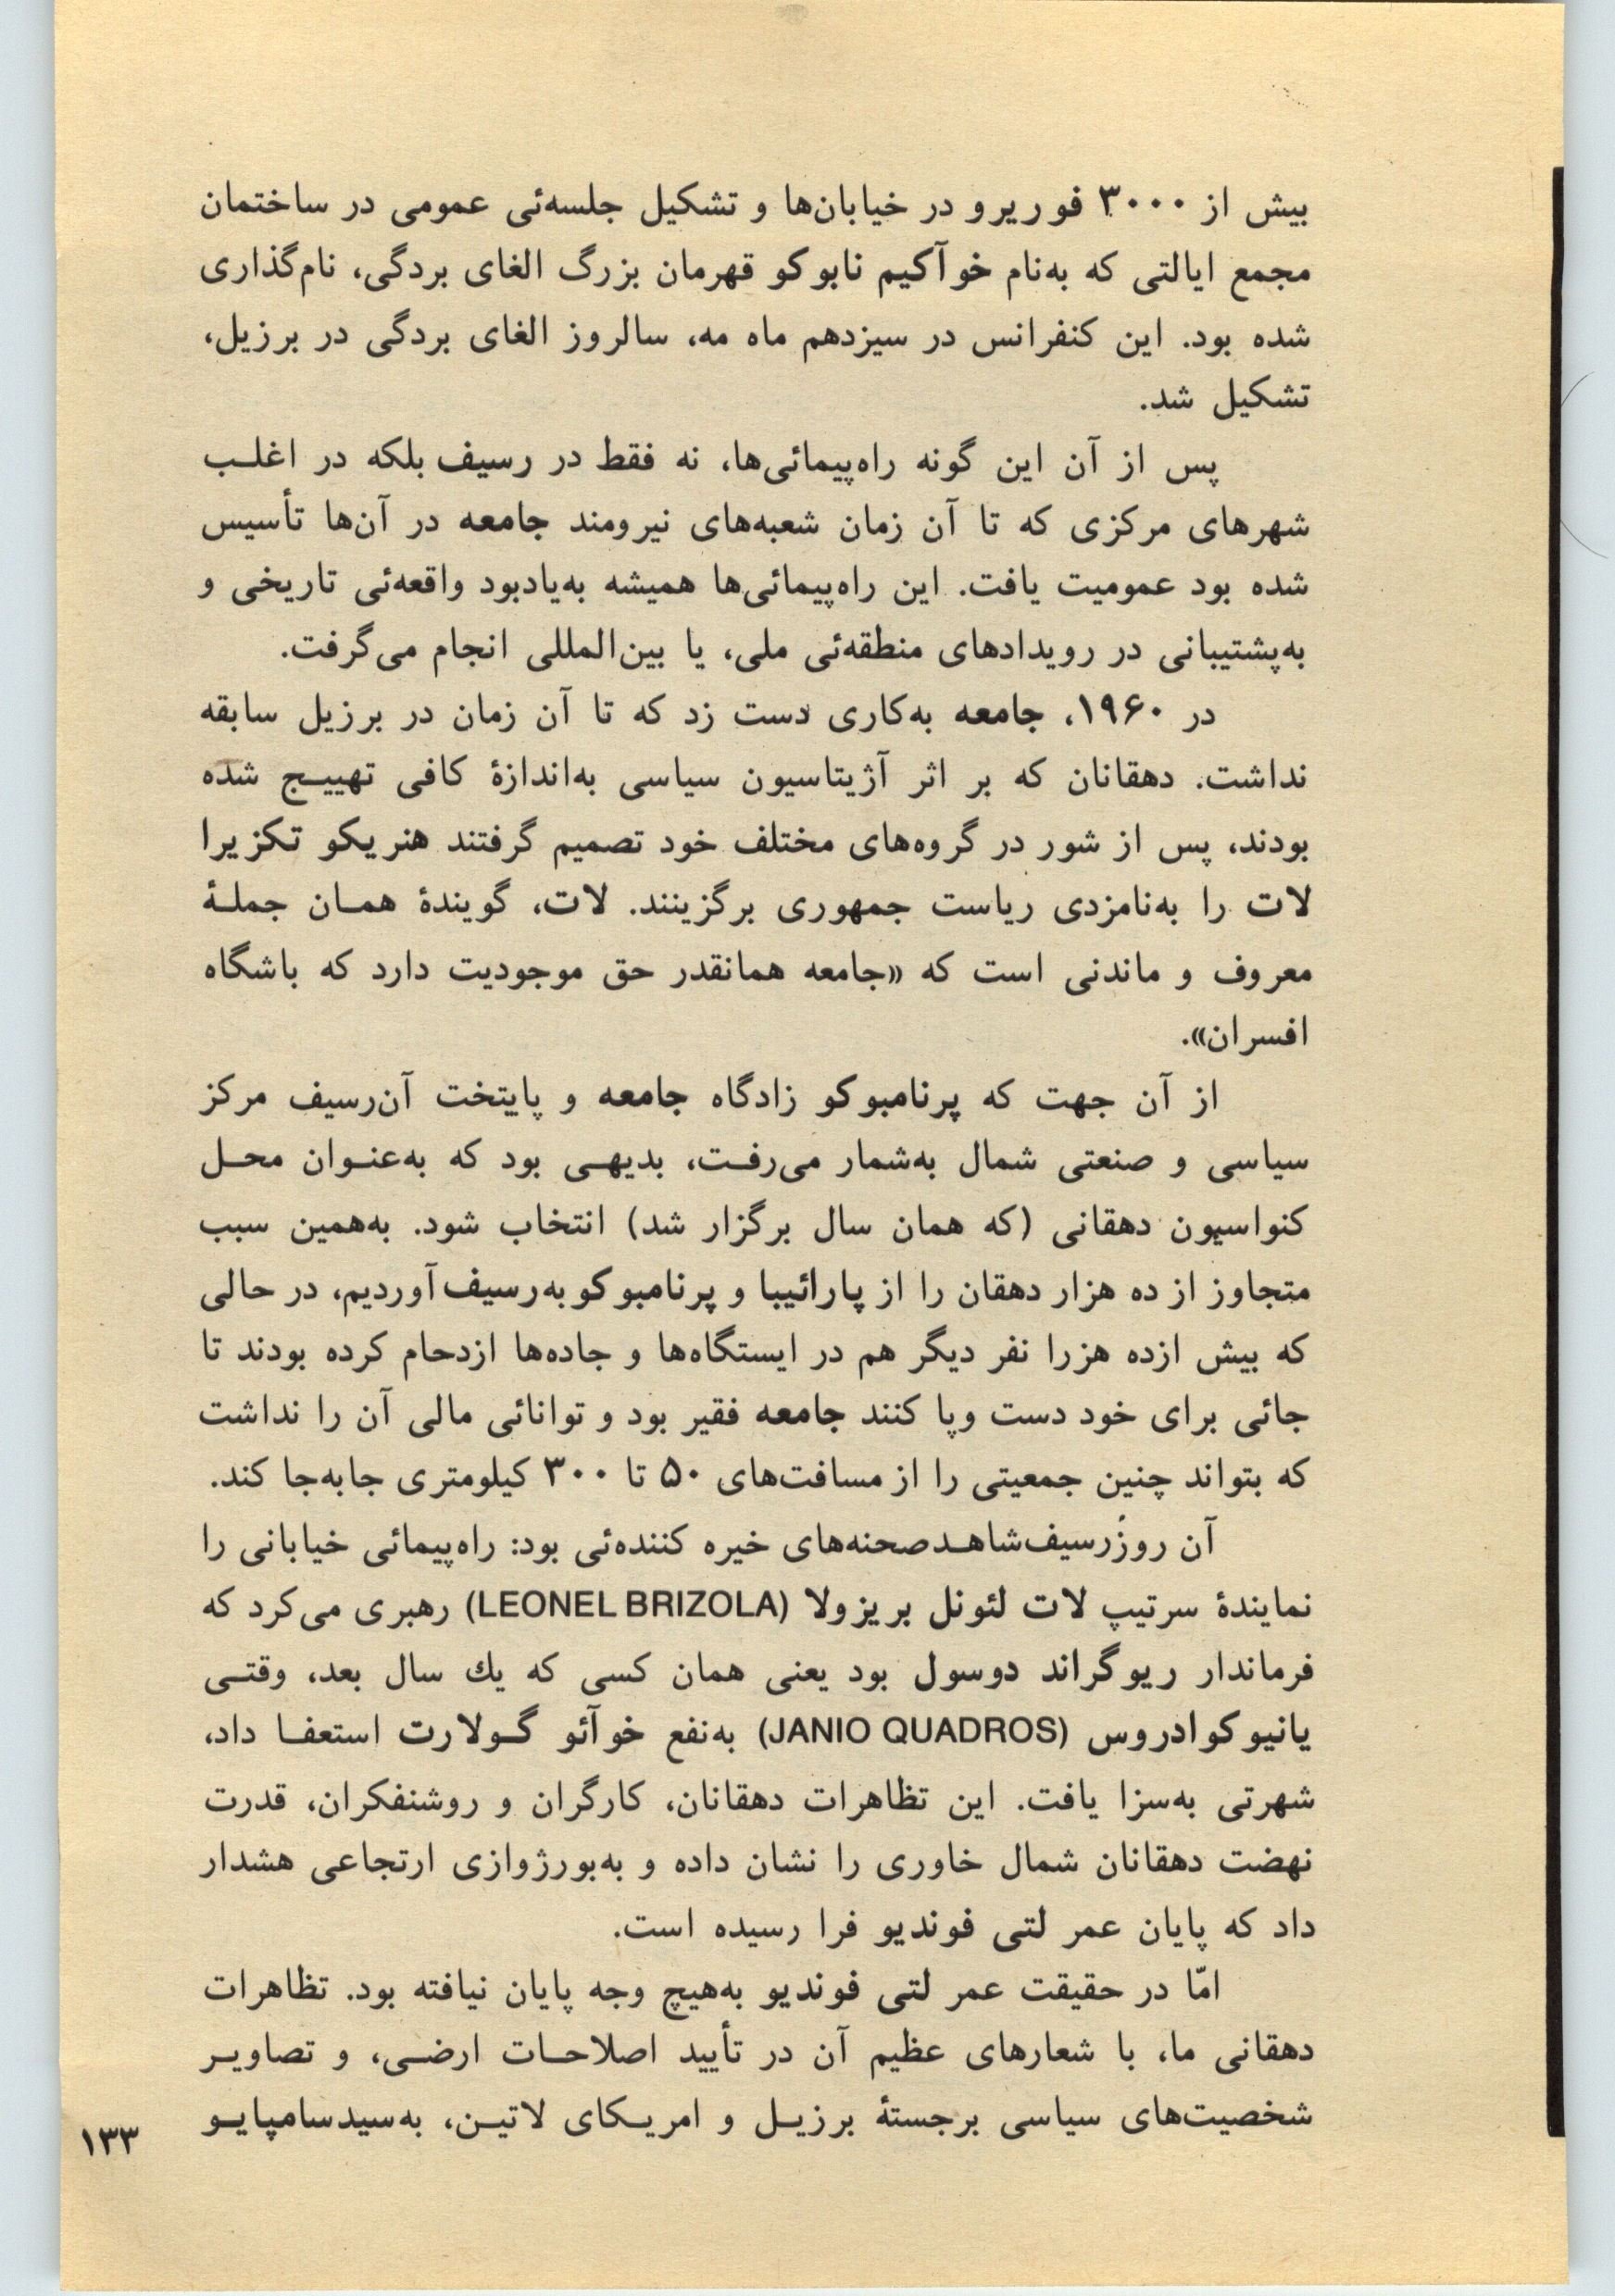 بیش از ۳۰۰۰ فوریرو در خیابان‌ها و تشکیل جلسه‌ئی عمومی در ساختمان
مجمع ایالتی که به‌نام خوآکیم نابوکو قهرمان بزرگ الغای بردگی، نام‌گذاری
شده بود. این کنفرانس در سیزدهم ماه مه، سالروز الغای بردگی در برزیل،
تشکیل شد.
پس از آن این گونه راه‌پیمائی‌ها، نه فقط در رسیف بلکه در اغلب
شهرهای مرکزی که تا آن زمان شعبه‌های نیرومند جامعه در آن‌ها تأسیس
شده بود عمومیت یافت. این راه‌پیمائی‌ها همیشه به‌یادبود واقعه‌ئی تاریخی و
به‌پشتیبانی در رویدادهای منطقه‌ئی ملی، یا بین‌المللی انجام می‌گرفت.
در ۱۹۶۰، جامعه به‌کاری دست زد که تا آن زمان در برزیل سابقه
نداشت. دهقانان که بر اثر آژیتاسیون سیاسی به‌اندازهٔ کافی تهییج شده
بودند، پس از شور در گروه‌های مختلف خود تصمیم گرفتند هنریکو تکزیرا
لات را به‌نامزدی ریاست جمهوری برگزینند. لات، گویندهٔ همان جملهٔ
معروف و ماندنی است که «جامعه همانقدر حق موجودیت دارد که باشگاه
افسران».
از آن جهت که پرنامبوکو زادگاه جامعه و پایتخت آن‌رسیف مرکز
سیاسی و صنعتی شمال به‌شمار می‌رفت، بدیهی بود که به‌عنوان محل
کنواسیون دهقانی (که همان سال برگزار شد) انتخاب شود. به‌همین سبب
متجاوز از ده هزار دهقان را از پارائیبا و پرنامبوکو به‌رسیف آوردیم، در حالی
که بیش ازده هزرا نفر دیگر هم در ایستگاه‌ها و جاده‌ها ازدحام کرده بودند تا
جائی برای خود دست وپا کنند جامعه فقیر بود و توانائی مالی آن را نداشت
که بتواند چنین جمعیتی را از مسافت‌های ۵۰ تا ۳۰۰ کیلومتری جابه‌جا کند.
آن روز رسیف شاهد صحنه‌های خیره کننده‌ئی بود: راه‌پیمائی خیابانی را
نمایندهٔ سرتیپ لات لئونل بریزولا (LEONEL BRIZOLA) رهبری می‌کرد که
فرماندار ریوگراند دوسول بود یعنی همان کسی که یك سال بعد، وقتی
یانیو کوادروس (JANIO QUADROS) به‌نفع خوآئو گولارت استعفا داد،
شهرتی به‌سزا یافت. این تظاهرات دهقانان، کارگران و روشنفکران، قدرت
نهضت دهقانان شمال خاوری را نشان داده و به‌بورژوازی ارتجاعی هشدار
داد که پایان عمر لتی فوندیو فرا رسیده است.
امّا در حقیقت عمر لتی فوندیو به‌هیچ وجه پایان نیافته بود. تظاهرات
دهقانی ما، با شعارهای عظیم آن در تأیید اصلاحات ارضی، و تصاویر
شخصیت‌های سیاسی برجستهٔ برزیل و امریکای لاتین، به‌سیدسامپایو
۱۳۳